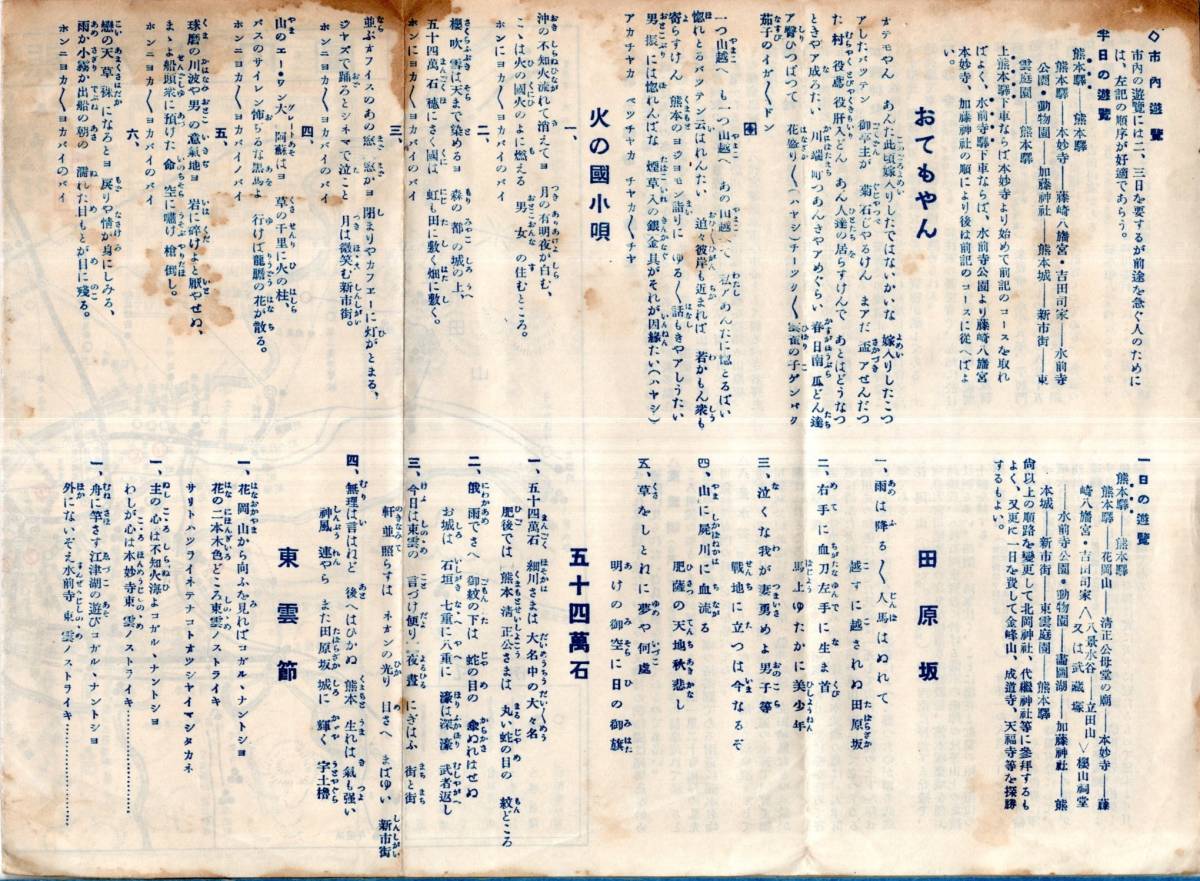 ◇市內遊覽
市內の遊覽には二、三日を要するが前途を急ぐ人のために
は、左記の順序が好適であらう。
半日の遊覽
熊本驛――熊本驛
熊本驛――本妙寺――藤崎八旛宮・吉田司家――水前寺
公園・動物園――加藤神社――熊本城――新市街――東
雲庭園――熊本驛
上熊本驛下車ならば本妙寺より始めて前記のコースを取れ
ばよく、水前寺驛下車ならば、水前寺公園より藤崎八旛宮
本妙寺、加藤神社の順により後は前記のコースに從へばよ
い。
おてもやん
オテモやん あんた此頃嫁入りしたではないかいな 嫁入りしたこつ
アしたバッテン 御亭主が 菊石じやるけん まアだ盃アせんだつ
た 村役鳶役肝入どん あん人達の居らすけんで あとはどうなつ
ときやア成ろたい 川端町つあんきやアめぐらい 春日南瓜どん達
ア臀ひつぱつて 花盛り〱
茄子のイガ〱ドン
一つ山越へ も一つ山越へ あの山越へて 私アあんたに惚とるばい
惚れとるバッテン云はれんたい 追々彼岸も近まれば 若かもん衆も
寄らすけん 熊本のヨジヨモン詣りに ゆる〱話もきやアしうたい
男振には惚れんばな 煙草入の銀金具がそれが因緣たい(ハヤシ)
アカチヤカ ベツチヤカ チヤカ〱チヤ
火の國小唄
一、
沖の不知火流れて消えてヨ 月の有明夜が白む、
こゝは火の國火のよに燃える 男 女 の住むところ。
ホンにヨカ〱ヨカバイのバイ
二、
櫻吹雪は天まで染めるヨ 森の都の城の上、
五十四萬石穗にさく國は 虹も地に敷く畑に敷く。
ホンにヨカ〱ヨカバイのバイ
三、
並ぶオフイスのあの窓 窓がヨ 閉まりやカフエーに灯がとまる、
ジヤズで踊ろとシネマで泣こと 月は微笑む新市街。
ホンにヨカ〱ヨカバイのバイ
四、
山のエー・ワン大阿蘇はヨ 草の千里に火の柱、
バスのサイレン怖らるな黑馬よ 行けば龍膽の花が散る。
ホンニヨカ〱ヨカバイノバイ
五、
球磨の川波や男の意氣地ヨ 岩に碎けよと厭やせぬ、
まゝよ船頭衆に預けた命 空に嘯け槍倒し。
ホンニヨカ〱ヨカバイのバイ
六、
戀の天草袂になろとヨ 戾りや情が身にしみる、
雨か小霧か出船の朝の 濡れた目もとが目に殘る。
ホンニヨカ〱ヨカバイのバイ
一日の遊覽
熊本驛――熊本驛
熊本驛――花岡山――清正公母堂の廟――本妙寺――藤
崎八旛宮・吉田司家〈八景水谷――立田山 又は武藏塚〉櫻山祠堂
――水前寺公園・動物園――畵圖湖――加藤神社――熊
本城――新市街――東雲庭園――熊本驛
尙以上の順路を變更して北岡神社、代繼神社等に參拜するも
よく、又更に一日を費して金峰山、成道寺、天福寺等を探勝
するもよい。
田原坂
一、雨は降る〱人馬はぬれて
越すに越されぬ田原坂
二、右手に血刀左手に生首
馬上ゆたかに美少年
三、泣くな我が妻勇めよ男子等
戰地に立つは今なるぞ
四、山に屍川に血流る
肥薩の天地秋悲し
五、草をしとれに夢や何處
明けの御空に日の御旗
五十四萬石
一、五十四萬石 細川さまは 大名中の大々名
肥後では 熊本淸正公さまは 丸い蛇の目の 紋どころ
二、俄雨でさへ 御紋の下は 蛇の目の 傘ぬれはせぬ
お城は 石垣 七重に八重に 濠は深濠 武者返し
三、今日は東雲の 言づけ便り 夜晝 にぎはふ 街と街
軒並照らすは ネオンの光り 日さへ まばゆい 新市街
四、無理は言はれど 後へはひかぬ 熊本生れは 氣も强い
神風 連やら また田原坂 城に 輝く 宇土櫓
東雲節
一、花岡山から向ふを見ればコガル、ナントシヨ
花の二本木色どころ東雲ノストライキ
サリトハツライネテナコトオツシヤイマシタカネ
一、主の心は不知火海よコガル、ナントシヨ
わしが心は本妙寺東雲ノストライキ…………
一、舟に竿さす江津湖の遊びコガル、ナントシヨ
外にないぞえ水前寺 東雲ノストライキ…………